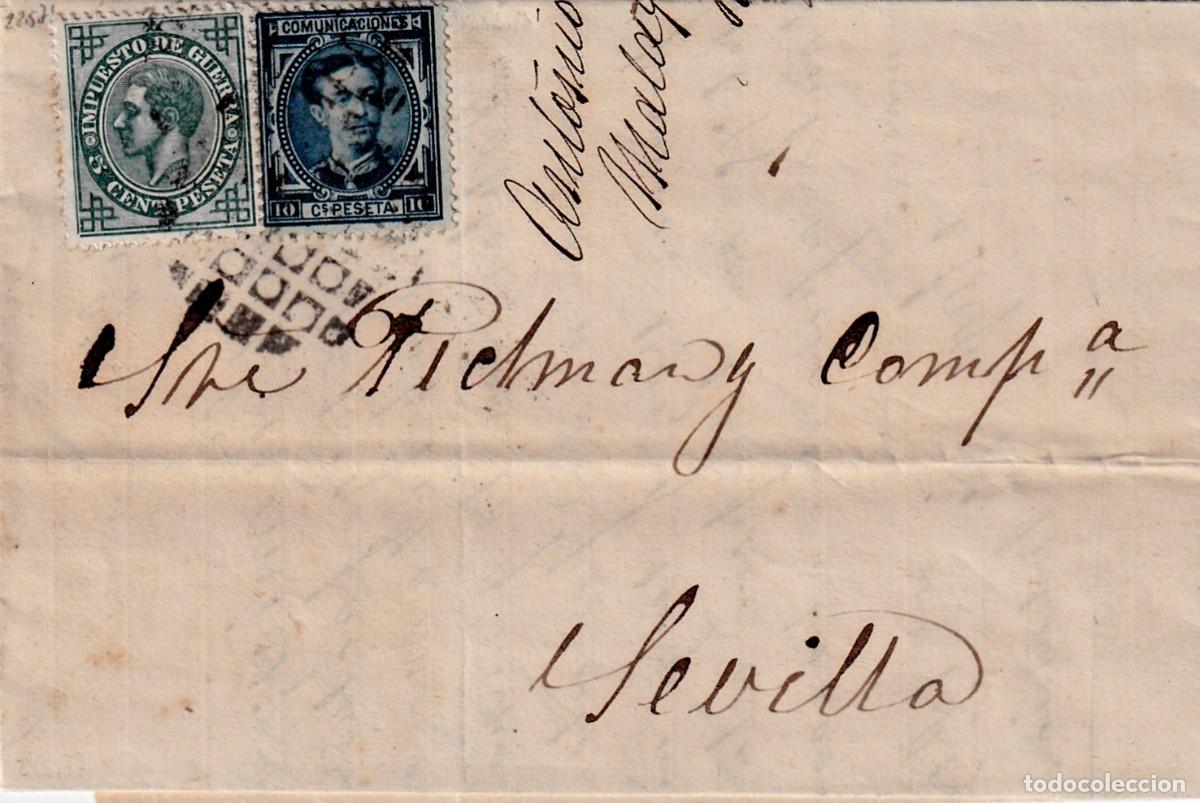 IMPUESTO DE GUERRA
5 CENTS PESETA
COMUNICACIONES
10 Cs PESETA 10
Antonio
Sre Picman y Comp a
Sevilla
todocoleccion